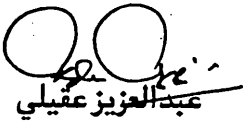 عبدالعزيز عقيلي